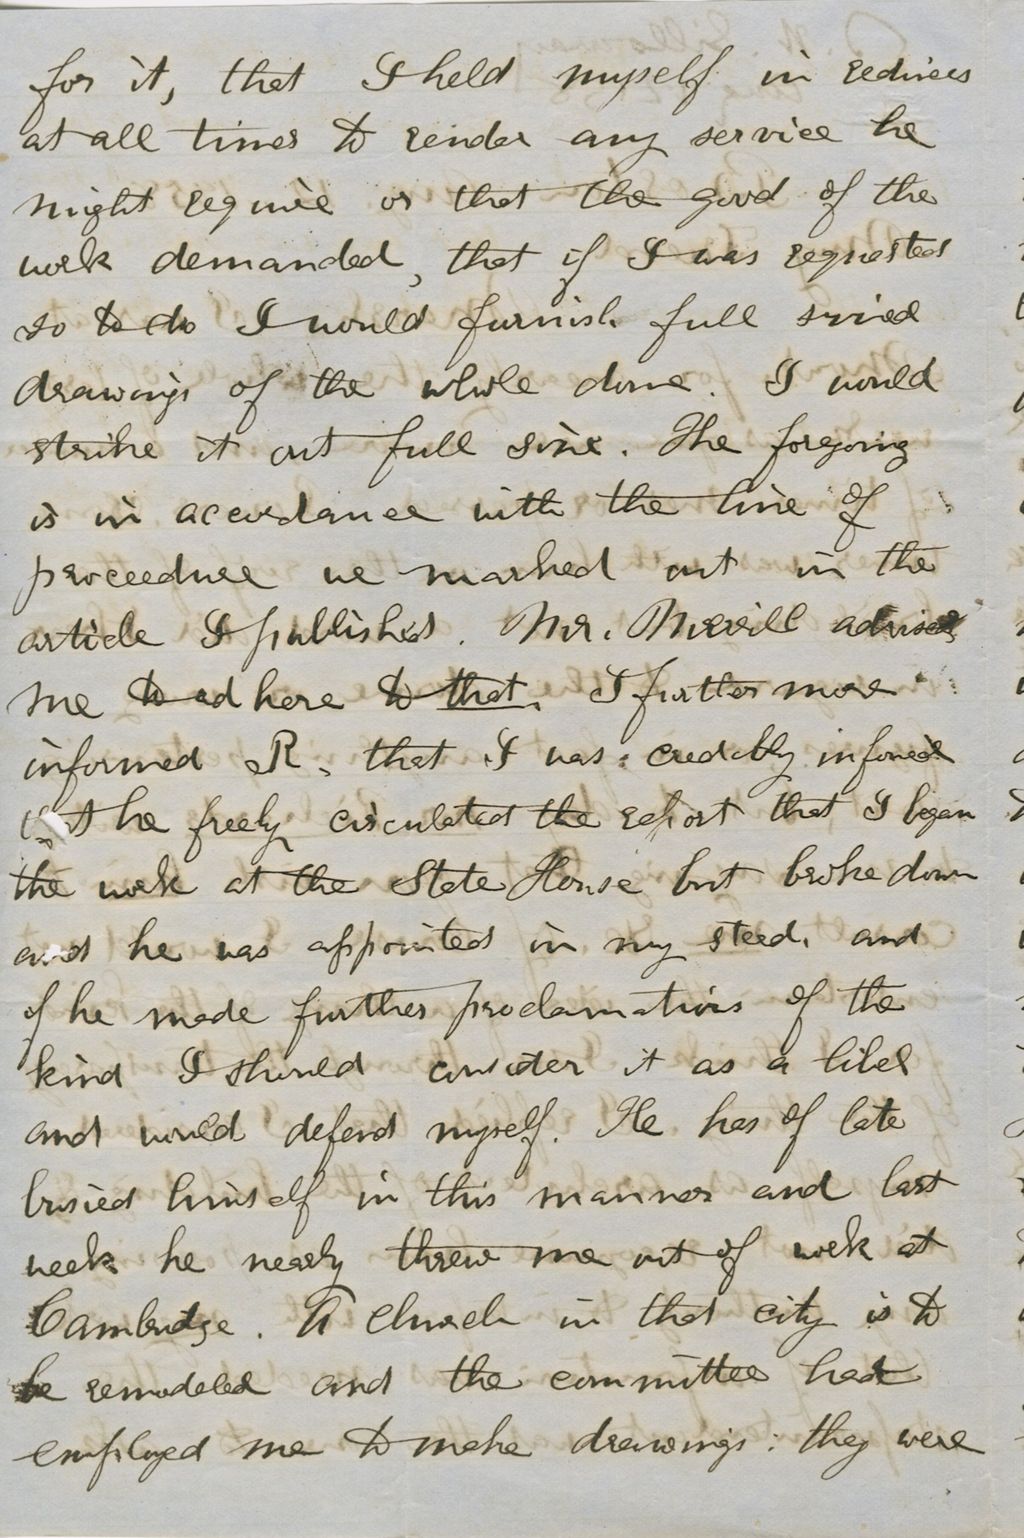 for it, that I held myself in rediness
at all times to render any service he
might require or that the good of the
work demanded, that if I was requested
so to do I would furnish full sized
drawings of the whole dome. I would
strike it out full size. The forgoing
is in accordance with the line of
proceedure we marked out in the
article I published. Mr. Merrill advised
me to adhere to that. I further more
informed R. that I was credably informed
that he freely circulated the report that I began
the work at the State House but broke down
and he was appointed in my stead. and
if he made further proclamations of the
kind I should consider it as a libel
and would defend myself. He has of late
busied himself in this manner and last
week he nearly threw me out of work at
Cambridge. A Church in that city is to
be remodeled and the committee had
employed me to make drawings: they were